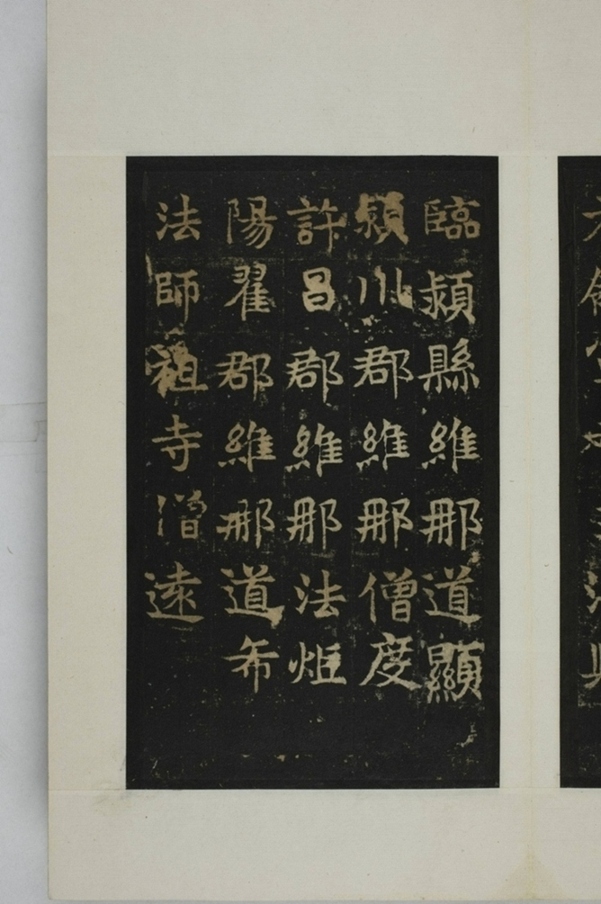 臨潁縣維那道顯
潁川郡維那僧度
許昌郡維那法炬
陽翟郡維那道希
法師祖寺僧遠